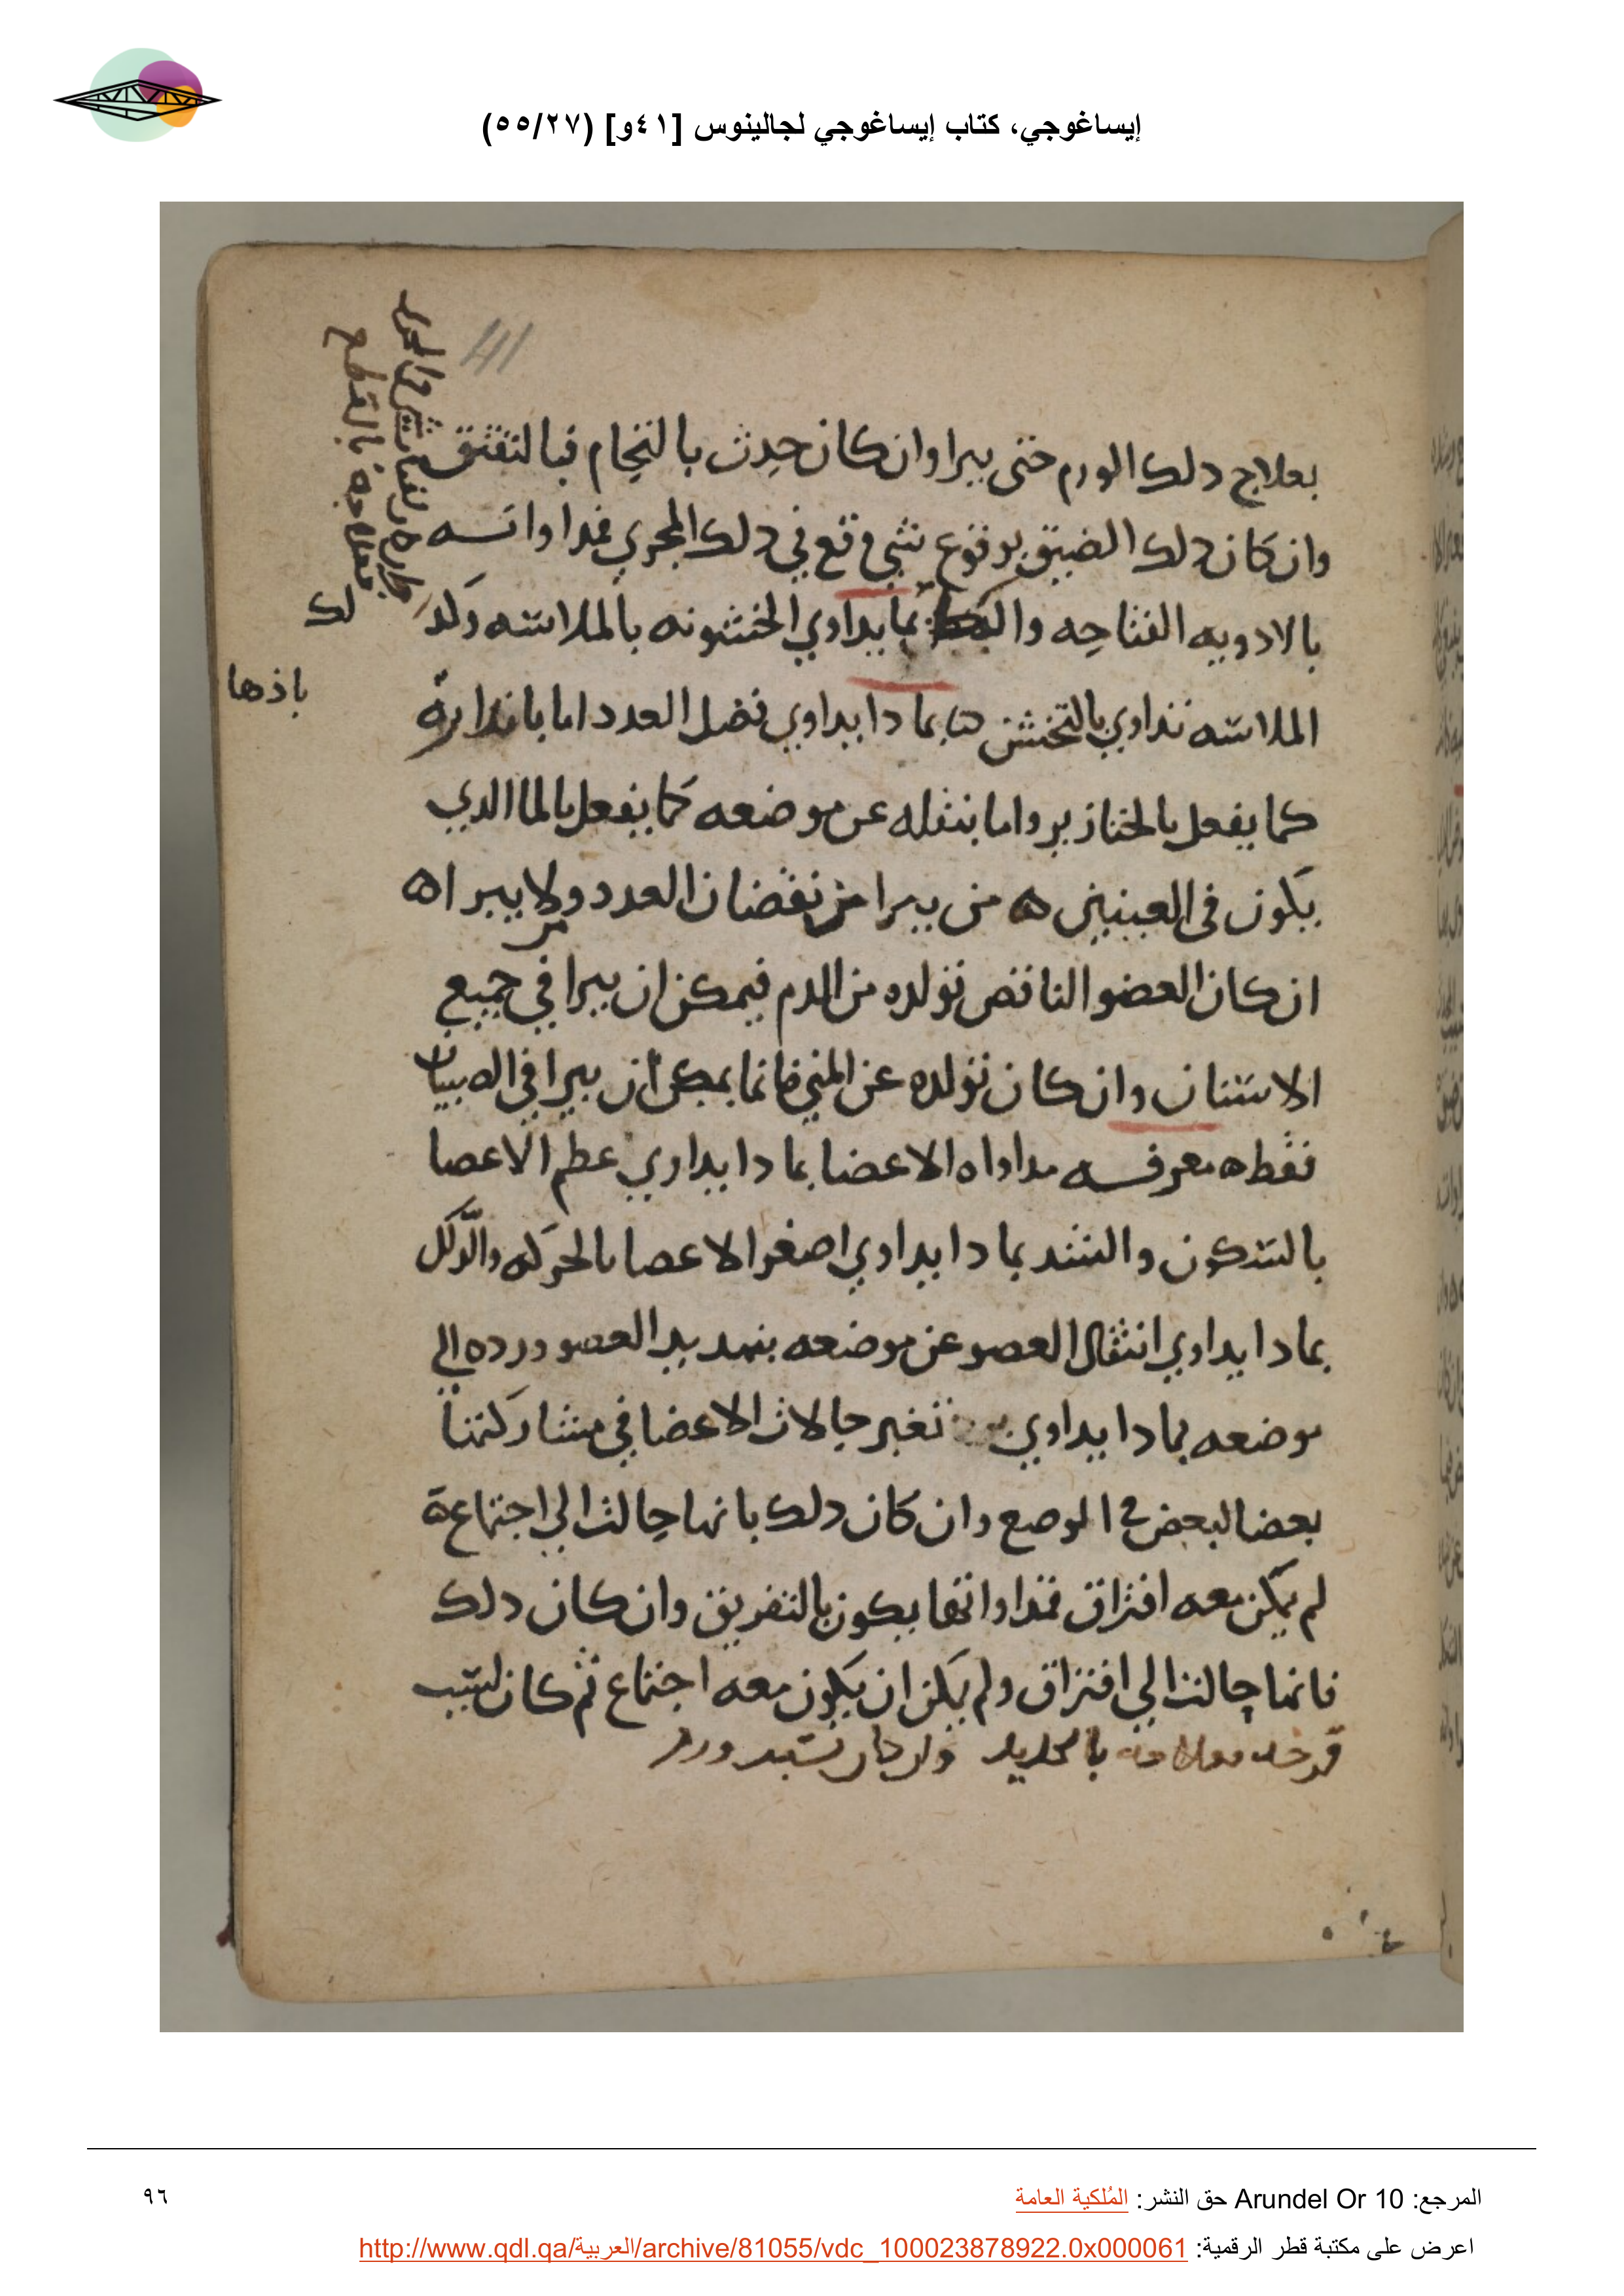 إيساغوجي، كتاب إيساغوجي لجالينوس [٤١و] (٥٥/٢٧)
41
بعلاج دلك الورم حتى يبرا وان كان حدث بالتحام فبالتفتق
وان كان دلك الضيق بوقوع شي وقع في دلك المجرى فمداواته
بالادويه الفتاحه بما يداوي الخشونه بالملاسه وكد
الملاسه تداوي بالتخشن بما دا يداوي فضل العدد اما
باذها
كما يفعل بالخنازير واما بنقله عن موضعه كما يفعل بالما الدي
يكون في العينين ه متى يبرا من نقصان العدد ولا يبرا ه
ان كان العضو الناقص تولده من الدم فيمكن ان يبرا في جميع
الاسنان وان كان تولده عن المني فانما يمكن ان يبرا في الصبيان
فقط ه معرفه مداواه الاعضا بما دا يداوي عطم الاعصا
بالسكون والشد بما دا يداوي اصغر الاعصا بالحركه والدلك
بما دا يداوي انتقال العصو عن موضعه بتمديد العصو ورده الى
موضعه بما دا يداوي تغير حالات الاعضا في مشاركتها
بعضا لبعض في الموضع وان كان دلك بانها حالت الي اجتماع
لم يمكن معه افتراق فمداواتها يكون بالتفريق وان كان دلك
فانها حالت الي افتراق ولم يمكن ان يكون معه اجتماع ثم كان لسبب
قرحه بالحديد وان كان
المرجع: Arundel Or 10 حق النشر: المُلكية العامة
٩٦
اعرض على مكتبة قطر الرقمية: http://www.qdl.qa/العربية/archive/81055/vdc_100023878922.0x000061